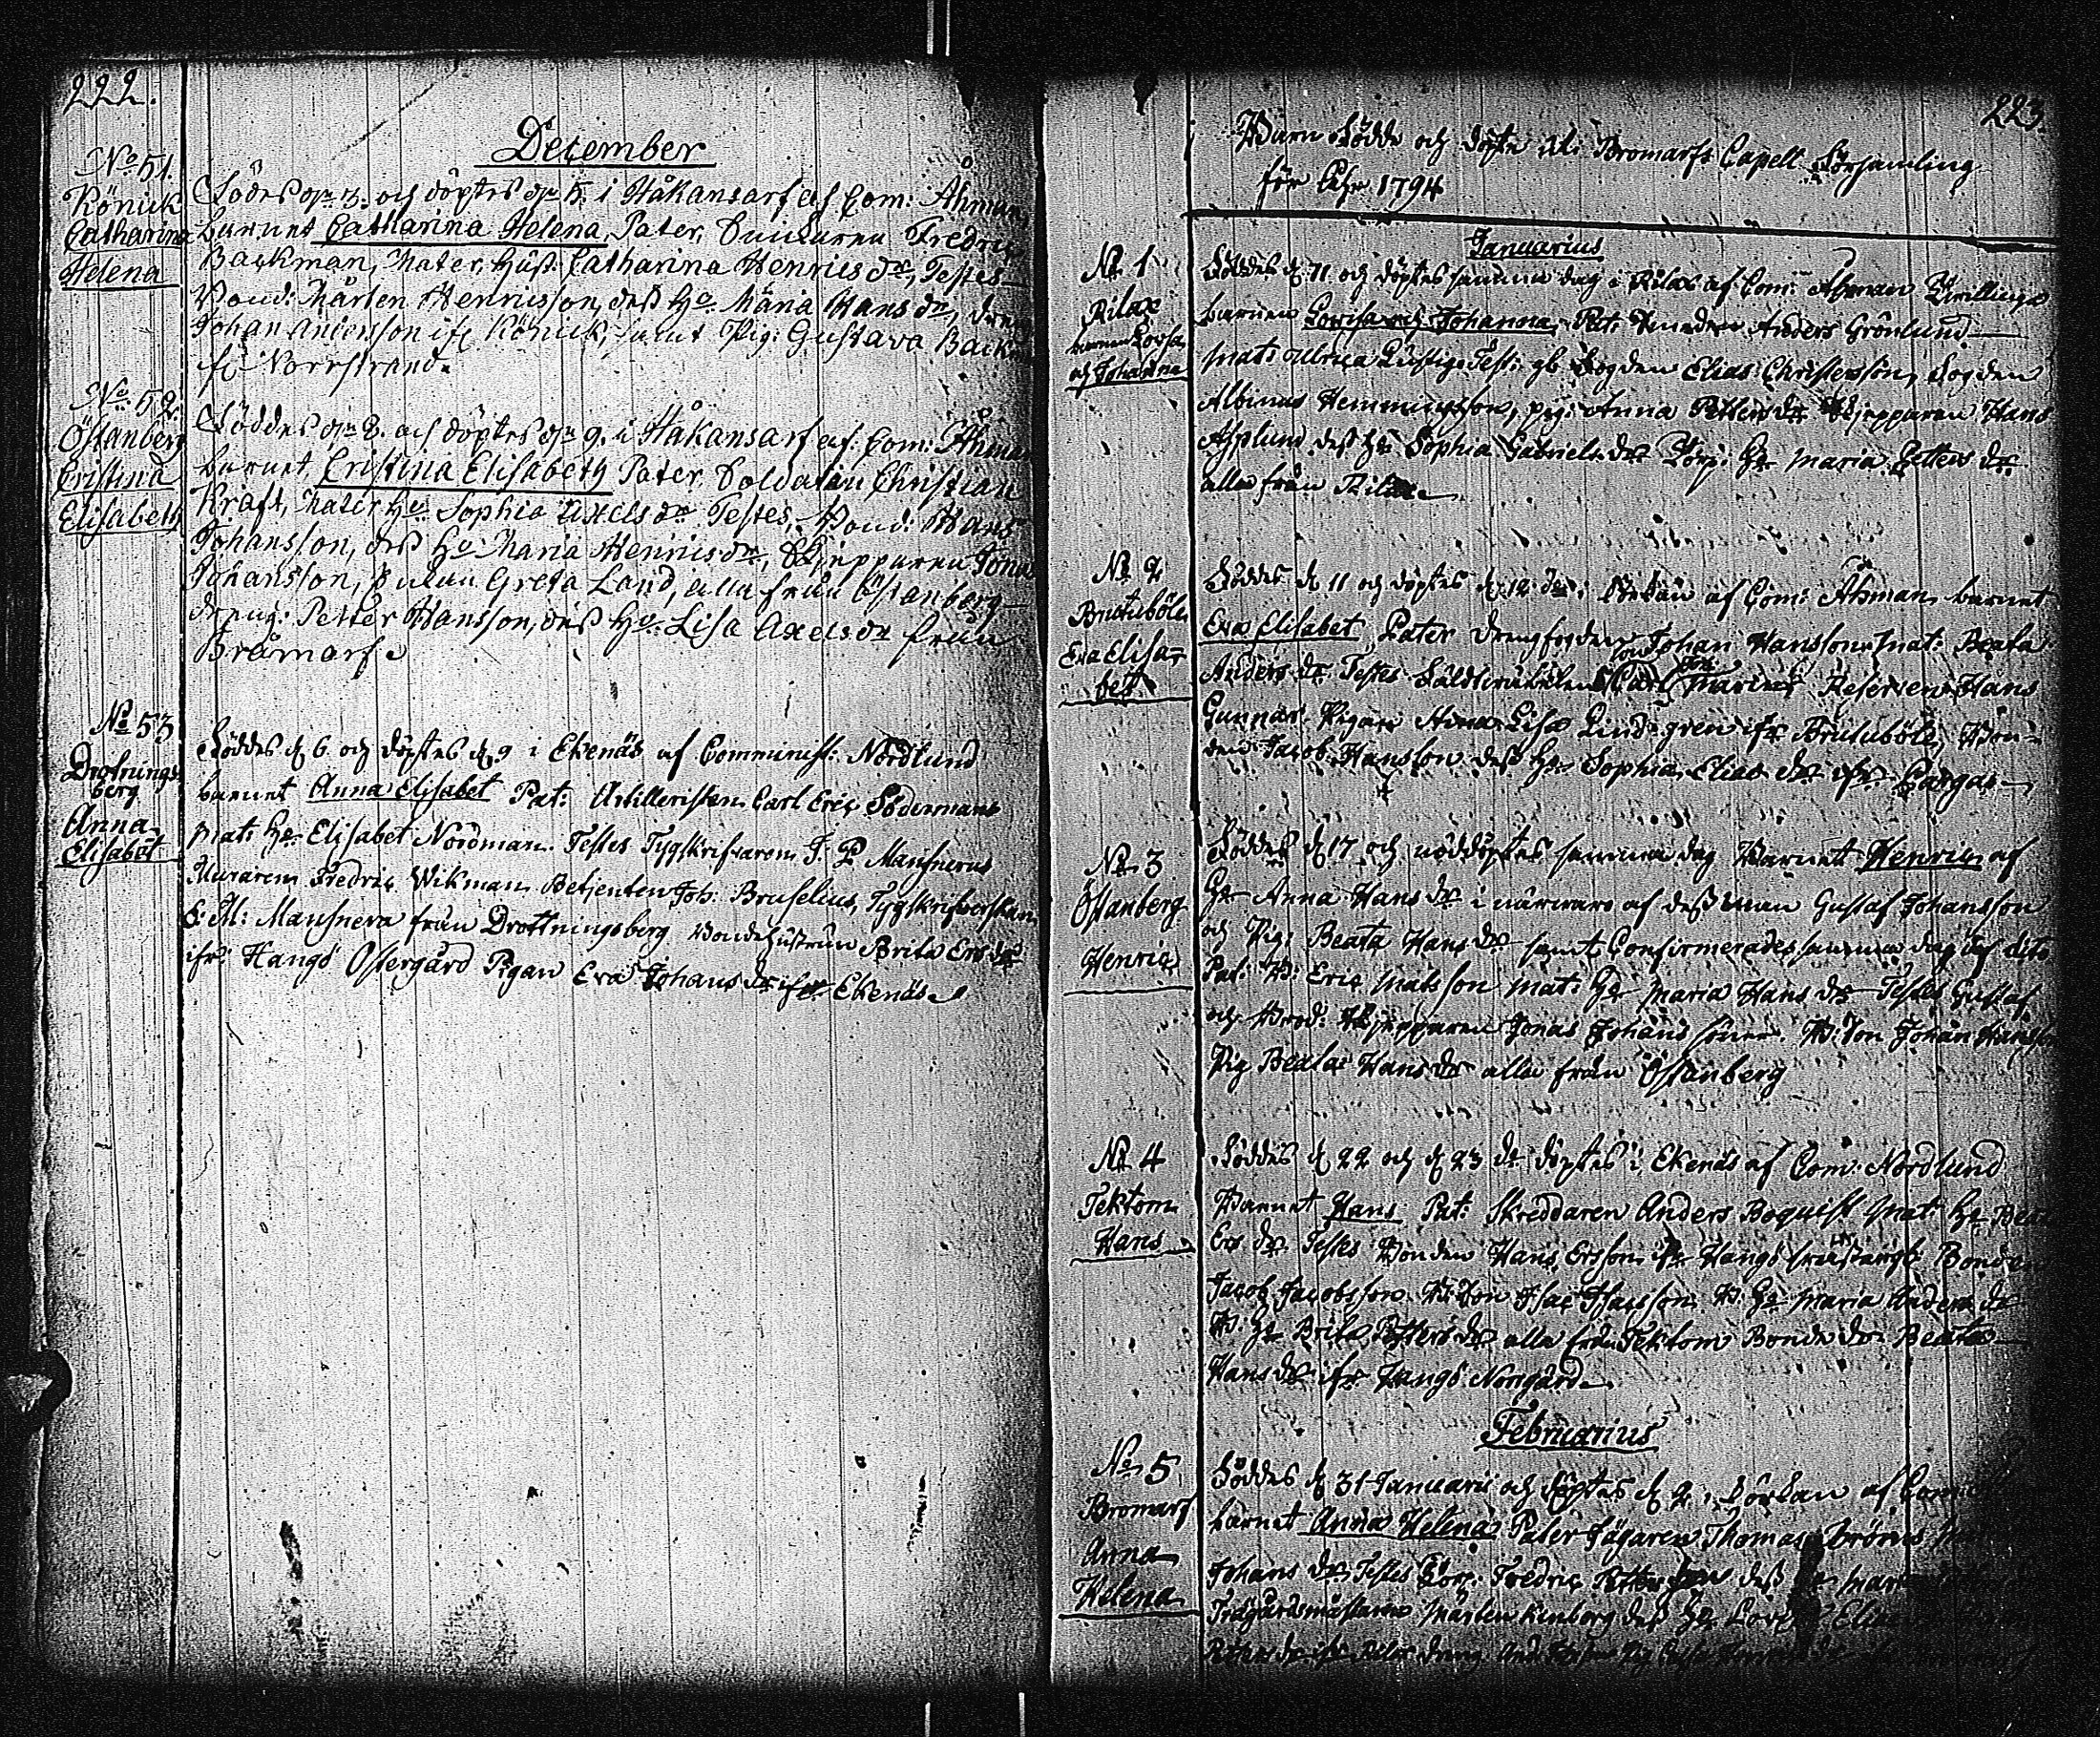 222.
December
No 51.
Könick
Catharina
Helena
Föddes dn 3. och döptes dn 5. i Håkansarf af Com: Åhman
barnet Catharina Helena, Pater, Fredric
Backman, Mater, Hust: Catharina Henrics dr, Testes
Bond: Mårten Henricsson, dess Ho Maria Hans dr, dren
Johan Andersson ifr Könick, samt Pig: Gustava Back
fr Norrstrand.
No 52
Östanberg
Cristina
Elisabeth
Föddes dn 8. och döptes dn 9. i Håkansarf af Com: Åhman
barnet, Cristina Elisabeth Pater, Soldaten Christian
Kraft, Mater Ho Sophia Axels dr Testes, Bond: Hans
Johansson, dess Ho Maria Henrics dr, Skepparen Jonas
Johansson, Enkan Greta Land, alla från Östanberg
dräng: Petter Hansson, dess Ho Lisa Axels dr från
Bramarf.
No 53
Drotnings
berg
Anna
Elisabet
Föddes d 6 och döptes d. 9 i Ekenäs af Comminist: Nordlund
barnet Anna Elisabet Pat: Artilleristen Carl Eric Söderman
Mat: Ho Elisabet Nordman. Testes Tygskrifvaren J. P Mansnerus
Muraren Fredric Wikman Betjenten Joh: Bruselius, Tygskrifverskan
E: M: Mansnera från Drottningsberg Bondehustrun Brita Ers dr
ifr: Hangö Östergård Pigan Eva Johans dr ifr Ekenäs
223.
Barn Födde och döpte uti Bromarfs Capell Församling
för Åhr 1794
Januarius
No 1
Rilax
barnen Lovisa
och Johanna
Föddes d. 11 och döptes samma dag i Rilax af Com: Åhman Tvillings
barnen Lovisa och Johanna, Pat: Smeden Anders Grönlund.
Mat: Ulrica Lustig. Test: gl Fogden Elias Christersson, Fogden
Albinus Hemmingsson, pig: Anna Petters dr Skepparen Hans
Asplund dess Ho Sophia Gabriels dr Torp: Ho Maria Petters dr
alla från Rilax
No 2
Brutuböle
Eva Elisa-
bet
Föddes d 11 och döptes d. 12 dr i Kirkan af Com: Åhman barnet
Eva Elisabet Pater drengfogden Johan Hansson Mat: Beata
Anders dr Testes Carl Marin Reserven Hans
Gunnar. Pigan Anna Lisa Lindgren ifr Brutuböle, Bon-
den Jacob Hansson dess Ho Sophia Elias dr ifr Bargas
No 3
Östanberg
Henric
Föddes d 17 och nöddöptes samma dag Barnet Henric af
Ho Anna Hans dr i närvaro af dess man Gustaf Johansson
och Pig: Beata Hans dr samt Confirmerades samma dag af dito
Pat: B: Eric Matsson Mat: Ho Maria Hans dr Testes Gustaf
och Brod: Skepparen Jonas Johans söner. B: Son Johan Hansson
Pig Beata Hans dr alla från Östanberg
No 4
Tektom
Hans
Föddes d 22 och d 23 dr döptes i Ekenäs af Com: Nordlund
Barnet Hans Pat: Skreddaren Anders Boquist Mat: Ho Beata
Ers dr Testes Bonden Hans Ersson ifr Hangö Bonden
Jacob Jacobsson. B: Son Isac Isacsson B. Ho Maria Anders dr
B. Ho Brita Petters dr alla från Tektom Bonde dr Beata
Hans dr ifr Hangö Norrgård
Februarius
No 5
Bromarf
Anna
Helena
Föddes d 31 Januarii och döptes d 2 i af Com
barnet Anna Helena Pater Jägaren Thomas
Johans dr, Testes Torp: Fredric Petters son dess Ho Mar
Trägårdsmästaren Mårten Kinborg dess Ho Lovisa